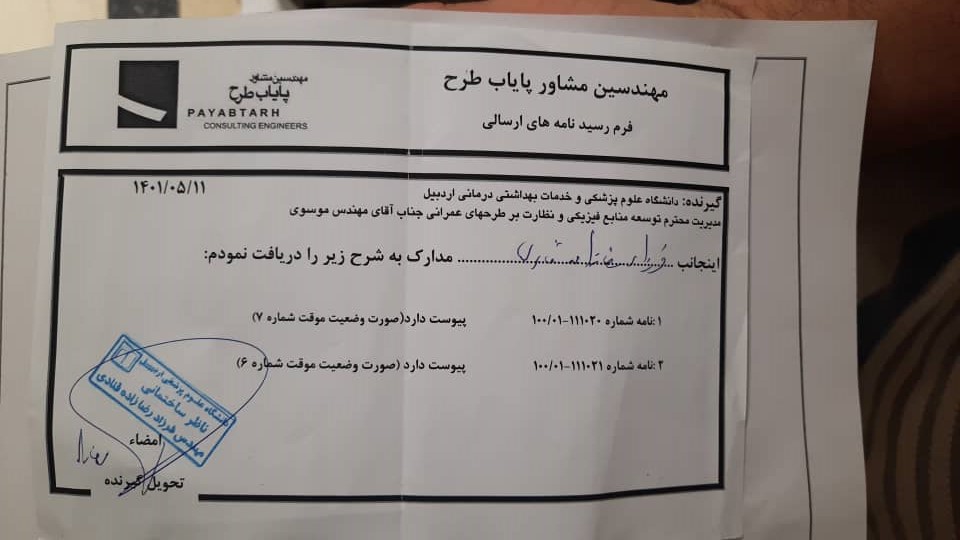 مهندسین مشاور پایاب طرح
فرم رسید نامه های ارسالی
مهندسین مشاور
پایاب طرح
PAYABTARH
CONSULTING ENGINEERS
۱۴۰۱/۰۵/۱۱
گیرنده: دانشگاه علوم پزشکی و خدمات بهداشتی درمانی اردبیل
مدیریت محترم توسعه منابع فیزیکی و نظارت بر طرحهای عمرانی جناب آقای مهندس موسوی
اینجانب ........ مدارک به شرح زیر را دریافت نمودم:
۱:نامه شماره ۱۱۱۰۲۰-۱۰۰/۰۱ پیوست دارد(صورت وضعیت موقت شماره ۷)
۲:نامه شماره ۱۱۱۰۲۱-۱۰۰/۰۱ پیوست دارد (صورت وضعیت موقت شماره ۶)
دانشگاه علوم پزشکی اردبیل
ناظر ساختمانی
مهندس فرزاد رضازاده قنادی
امضاء
تحویل گیرنده